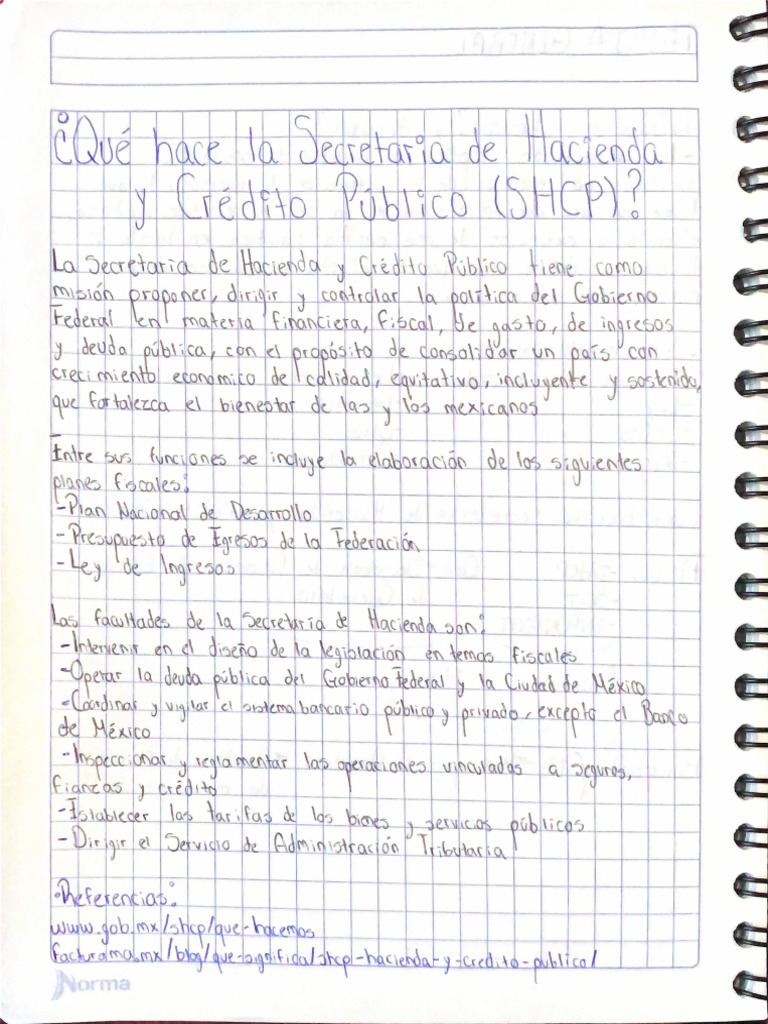 ¿Qué hace la Secretaria de Hacienda
y Crédito Público (SHCP)?
La Secretaria de Hacienda y Crédito Público tiene como
misión proponer, dirigir y controlar la política del Gobierno
Federal en materia financiera, fiscal, de gasto, de ingresos
y deuda pública, con el propósito de consolidar un país con
crecimiento economico de calidad, equitativo, incluyente y sostenido,
que fortalezca el bienestar de las y los mexicanos
Entre sus funciones se incluye la elaboración de los siguientes
planes fiscales:
-Plan Nacional de Desarrollo
-Presupuesto de Egresos de la Federación
-Ley de Ingresos
Las facultades de la Secretaría de Hacienda son:
-Intervenir en el diseño de la legislación en temas fiscales
-Operar la deuda pública del Gobierno Federal y la Ciudad de México
-Coordinar y vigilar el sistema bancario público y privado, excepto el Banco
de México
-Inspeccionar y reglamentar las operaciones vinculadas a seguros,
fianzas y crédito
-Establecer las tarifas de los bienes y servicios públicos
-Dirigir el Servicio de Administración Tributaria
·Referencias:
www.gob.mx/shcp/que-hacemos
facturama.mx/blog/que-significa/shcp-hacienda-y-credito-publico/
Norma